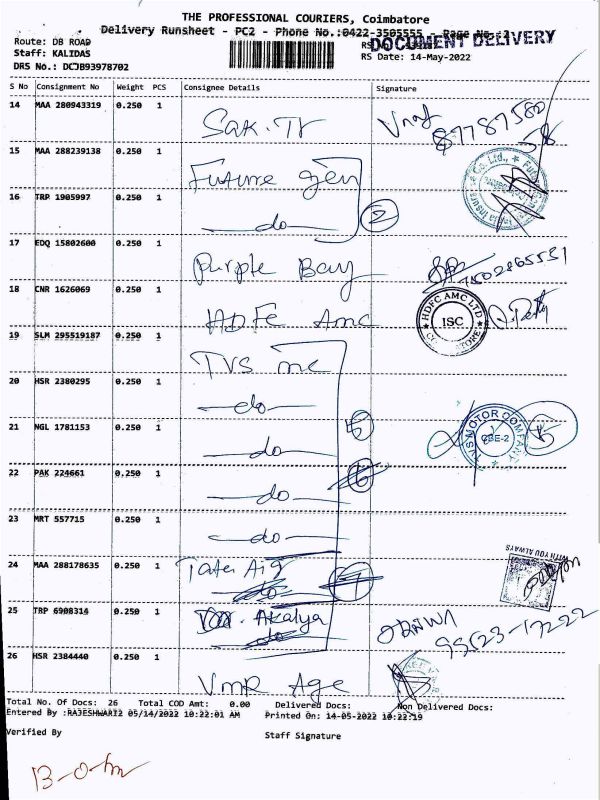 THE PROFESSIONAL COURIERS, Coimbatore
Delivery Runsheet - PC2 - Phone No.:0422-3505555 - Page No. 2
DOCUMENT DELIVERY
Route: DB ROAD
Staff: KALIDAS
RS Date: 14-May-2022
DRS No.: DCJB93978702
S No Consignment No Weight PCS Consignee Details Signature
14 MAA 280943319 0.250 1 Sak. Tr
15 MAA 288239138 0.250 1 Future gen
16 TRP 1905997 0.250 1 do 2
17 EDQ 15802600 0.250 1 Purple Bay 7502865531
18 CNR 1626069 0.250 1 HDFC Amc
HDFC AMC LTD
ISC
19 SLM 295519187 0.250 1 TVS mc
20 HSR 2380295 0.250 1 do
21 NGL 1781153 0.250 1 do 5
TVS MOTOR COMPANY
CBE-2
5
22 PAK 224661 0.250 1 do
23 MRT 557715 0.250 1 do
24 MAA 288178635 0.250 1 Tata Aig
WITH YOU ALWAYS
25 TRP 6908314 0.250 1 Akalya
95123-17222
26 HSR 2384440 0.250 1 VMR Age
Total No. Of Docs: 26 Total COD Amt: 0.00 Delivered Docs: Non Delivered Docs:
Entered By :RAJESHWARI2 05/14/2022 10:22:01 AM Printed On: 14-05-2022 10:22:19
Verified By Staff Signature